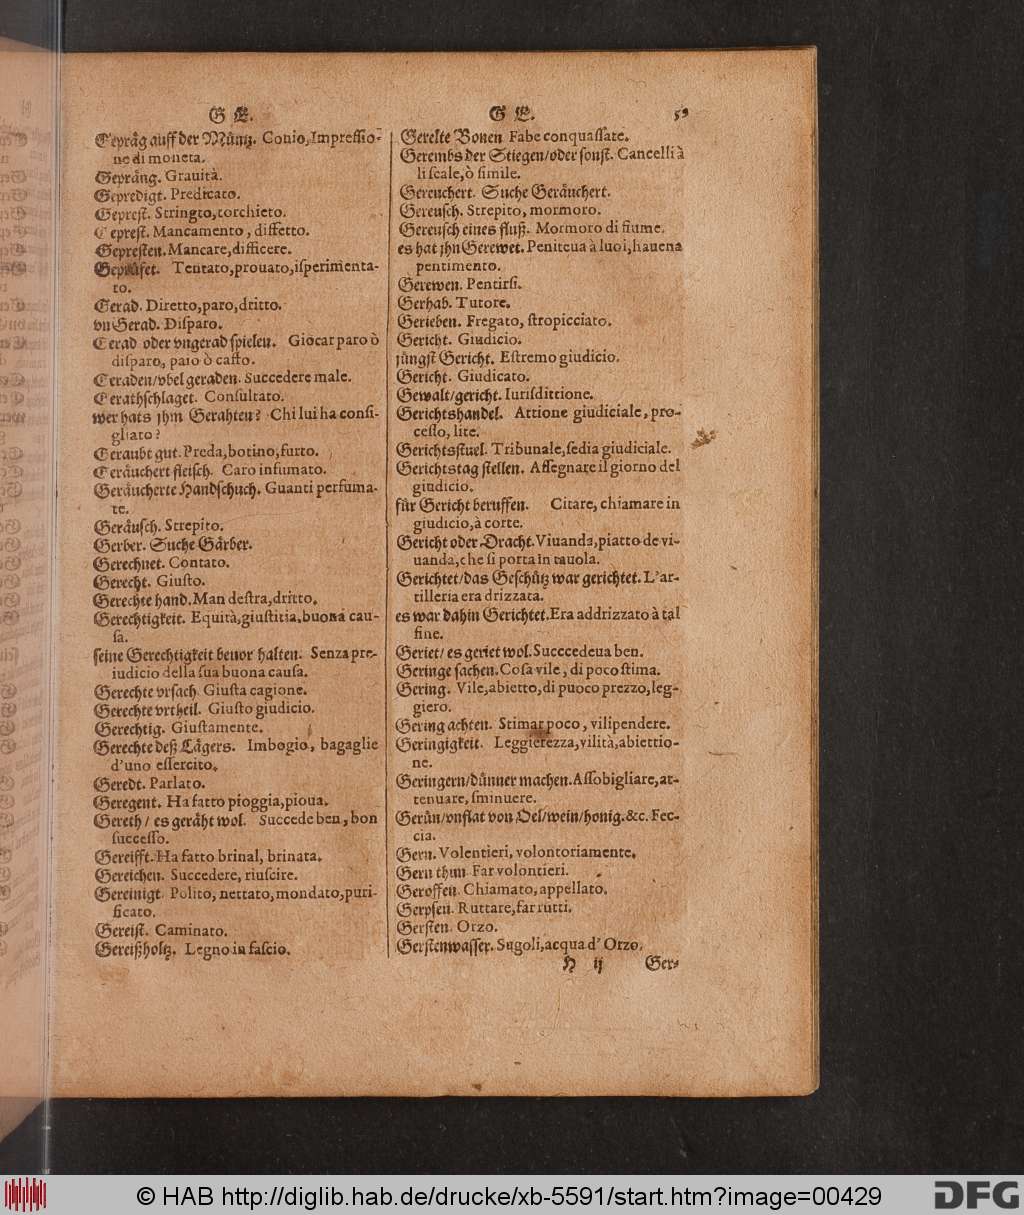 G E.
Gepråg auff der Můntz. Conio, Impressio-
ne di moneta.
Geprång. Grauità.
Gepredigt. Predicato.
Geprest. Stringto, torchieto.
Geprest. Mancamento, diffetto.
Gepresten. Mancare, difficere.
Geprůfet. Tentato, prouato, isperimenta-
to.
Gerad. Diretto, paro, dritto.
vn Gerad. Disparo.
Gerad oder vngerad spielen. Giocar paro ò
disparo, paio ò caffo.
Geraden/vbel geraden. Succedere male.
Gerathschlaget. Consultato.
wer hats jhm Gerahten? Chi lui ha consi-
gliato?
Geraubt gut. Preda, botino, furto.
Geråuchert fleisch. Caro infumato.
Geråucherte Handschuch. Guanti perfuma-
te.
Geråusch. Strepito.
Gerber. Suche Gårber.
Gerechnet. Contato.
Gerecht. Giusto.
Gerechte hand. Man destra, dritto.
Gerechtigkeit. Equità, giustitia, buona cau-
sa.
seine Gerechtigkeit beuor halten. Senza pre-
iudicio della sua buona causa.
Gerechte vrsach. Giusta cagione.
Gerechte vrtheil. Giusto giudicio.
Gerechtig. Giustamente.
Gerechte deß Lågers. Imbogio, bagaglie
d'uno essercito.
Geredt. Parlato.
Geregent. Ha fatto pioggia, pioua.
Gereth / es geråht wol. Succede ben, bon
successo.
Gereifft. Ha fatto brinal, brinata.
Gereichen. Succedere, riuscire.
Gereinigt. Polito, nettato, mondato, puri-
ficato.
Gereist. Caminato.
Gereißholtz. Legno in fascio.
G E. 59
Gerelte Bonen. Fabe conquassate.
Gerembs der Stiegen/oder sonst. Cancelli à
li scale, ò simile.
Gereuchert. Suche Geråuchert.
Gereusch. Strepito, mormoro.
Gereusch eines fluß. Mormoro di fiume.
es hat jhn Gerewet. Peniteua à luoi, hauena
pentimento.
Gerewen. Pentirsi.
Gerhab. Tutore.
Gerieben. Fregato, stropicciato.
Gericht. Giudicio.
jůngst Gericht. Estremo giudicio.
Gericht. Giudicato.
Gewalt/gericht. Iurisdittione.
Gerichtshandel. Attione giudiciale, pro-
cesso, lite.
Gerichtsstuel. Tribunale, sedia giudiciale.
Gerichtstag stellen. Assegnare il giorno del
giudicio.
für Gericht beruffen. Citare, chiamare in
giudicio, à corte.
Gericht oder Dracht. Viuanda, piatto de vi-
uanda, che si porta in tauola.
Gerichtet/das Geschůtz war gerichtet. L'ar-
tilleria era drizzata.
es war dahin Gerichtet. Era addrizzato à tal
fine.
Geriet/ es geriet wol. Succcedeua ben.
Geringe sachen. Cosa vile, di poco stima.
Gering. Vile, abietto, di puoco prezzo, leg-
giero.
Gering achten. Stimar poco, vilipendere.
Geringigkeit. Leggierezza, vilità, abiettio-
ne.
Geringern/důnner machen. Assobigliare, at-
tenuare, sminuere.
Gerůn/vnflat von Oel/wein/honig. &c. Fec-
cia.
Gern. Volentieri, volontoriamente.
Gern thun. Far volontieri.
Geroffen. Chiamato, appellato.
Gerpsen. Ruttare, far rutti.
Gersten. Orzo.
Gerstenwasser. Sugoli, acqua d' Orzo.
H ij Ger-
© HAB http://diglib.hab.de/drucke/xb-5591/start.htm?image=00429
DFG